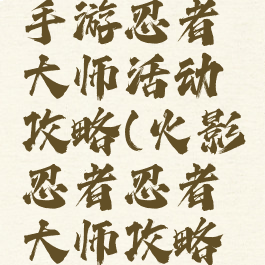 手游忍者
大师活动
攻略(火影
忍者忍者
大师攻略